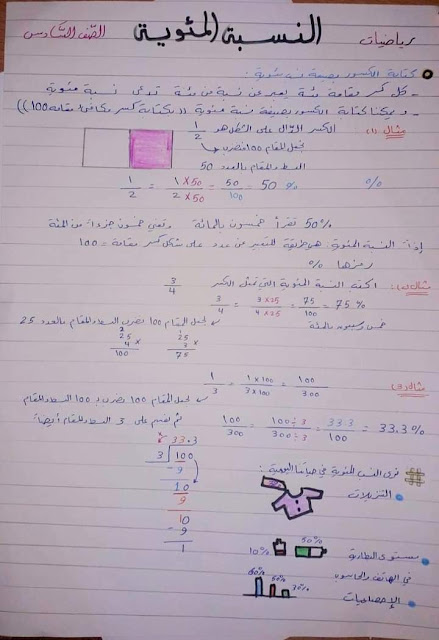 رياضيات النسبة المئوية الصف السادس
كتابة الكسور بصيغة نسب مئوية :
- كل كسر مقامه مئة يعبر عن نسبة من مئة تدعى نسبة مئوية
- ويمكننا كتابة الكسور بصيغة نسبة مئوية (( بكتابة كسر يكافئها مقامه 100 ))
مثال (1) : الكسر الدال على المظلل هو 1/2
لجعل المقام 100 نضرب
البسط والمقام بالعدد 50
1/2 = 1 × 50 / 2 × 50 = 50/100 = 50 % %
50% تقرأ خمسون بالمائة وتعني خمسون جزءاً من المئة
إذاً: النسبة المئوية: هي طريقة للتعبير عن عدد على شكل كسر مقامه = 100
رمزها %
مثال (2) : اكتب النسبة المئوية التي تمثل الكسر 3/4
3/4 = 3 × 25 / 4 × 25 = 75/100 = 75 %
خمس وسبعون بالمئة
لجعل المقام 100 نضرب البسط والمقام بالعدد 25
25 × 4 = 100
25 × 3 = 75
مثال (3) 1/3 = 1 × 100 / 3 × 100 = 100/300
لجعل المقام 100 نضرب بـ 100 البسط والمقام
ثم نقسم على 3 البسط والمقام أيضاً:
100/300 = 100 ÷ 3 / 300 ÷ 3 = 33.3/100 = 33.3%
33.3
3 100
- 9
10
9
10
- 9
1
# نرى النسب المئوية في حياتنا اليومية :
التنزيلات
مستوى البطارية 50% 10%
في الهاتف والحاسوب
الإحصائيات 60% 50% 30%